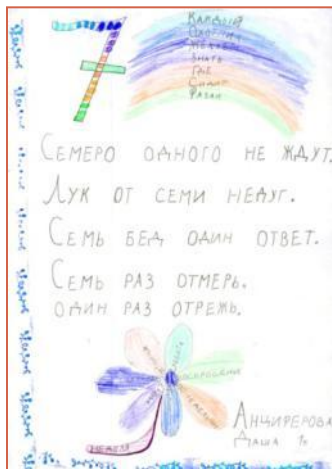 7
КАЖДЫЙ
ОХОТНИК
ЖЕЛАЕТ
ЗНАТЬ
ГДЕ
СИДИТ
ФАЗАН
СЕМЕРО ОДНОГО НЕ ЖДУТ.
ЛУК ОТ СЕМИ НЕДУГ.
СЕМЬ БЕД ОДИН ОТВЕТ.
СЕМЬ РАЗ ОТМЕРЬ.
ОДИН РАЗ ОТРЕЖЬ.
СУББОТА
ВОСКРЕСЕНИЕ
НЕДЕЛЯ
АНЦИРЕРОВА
ДАША 1